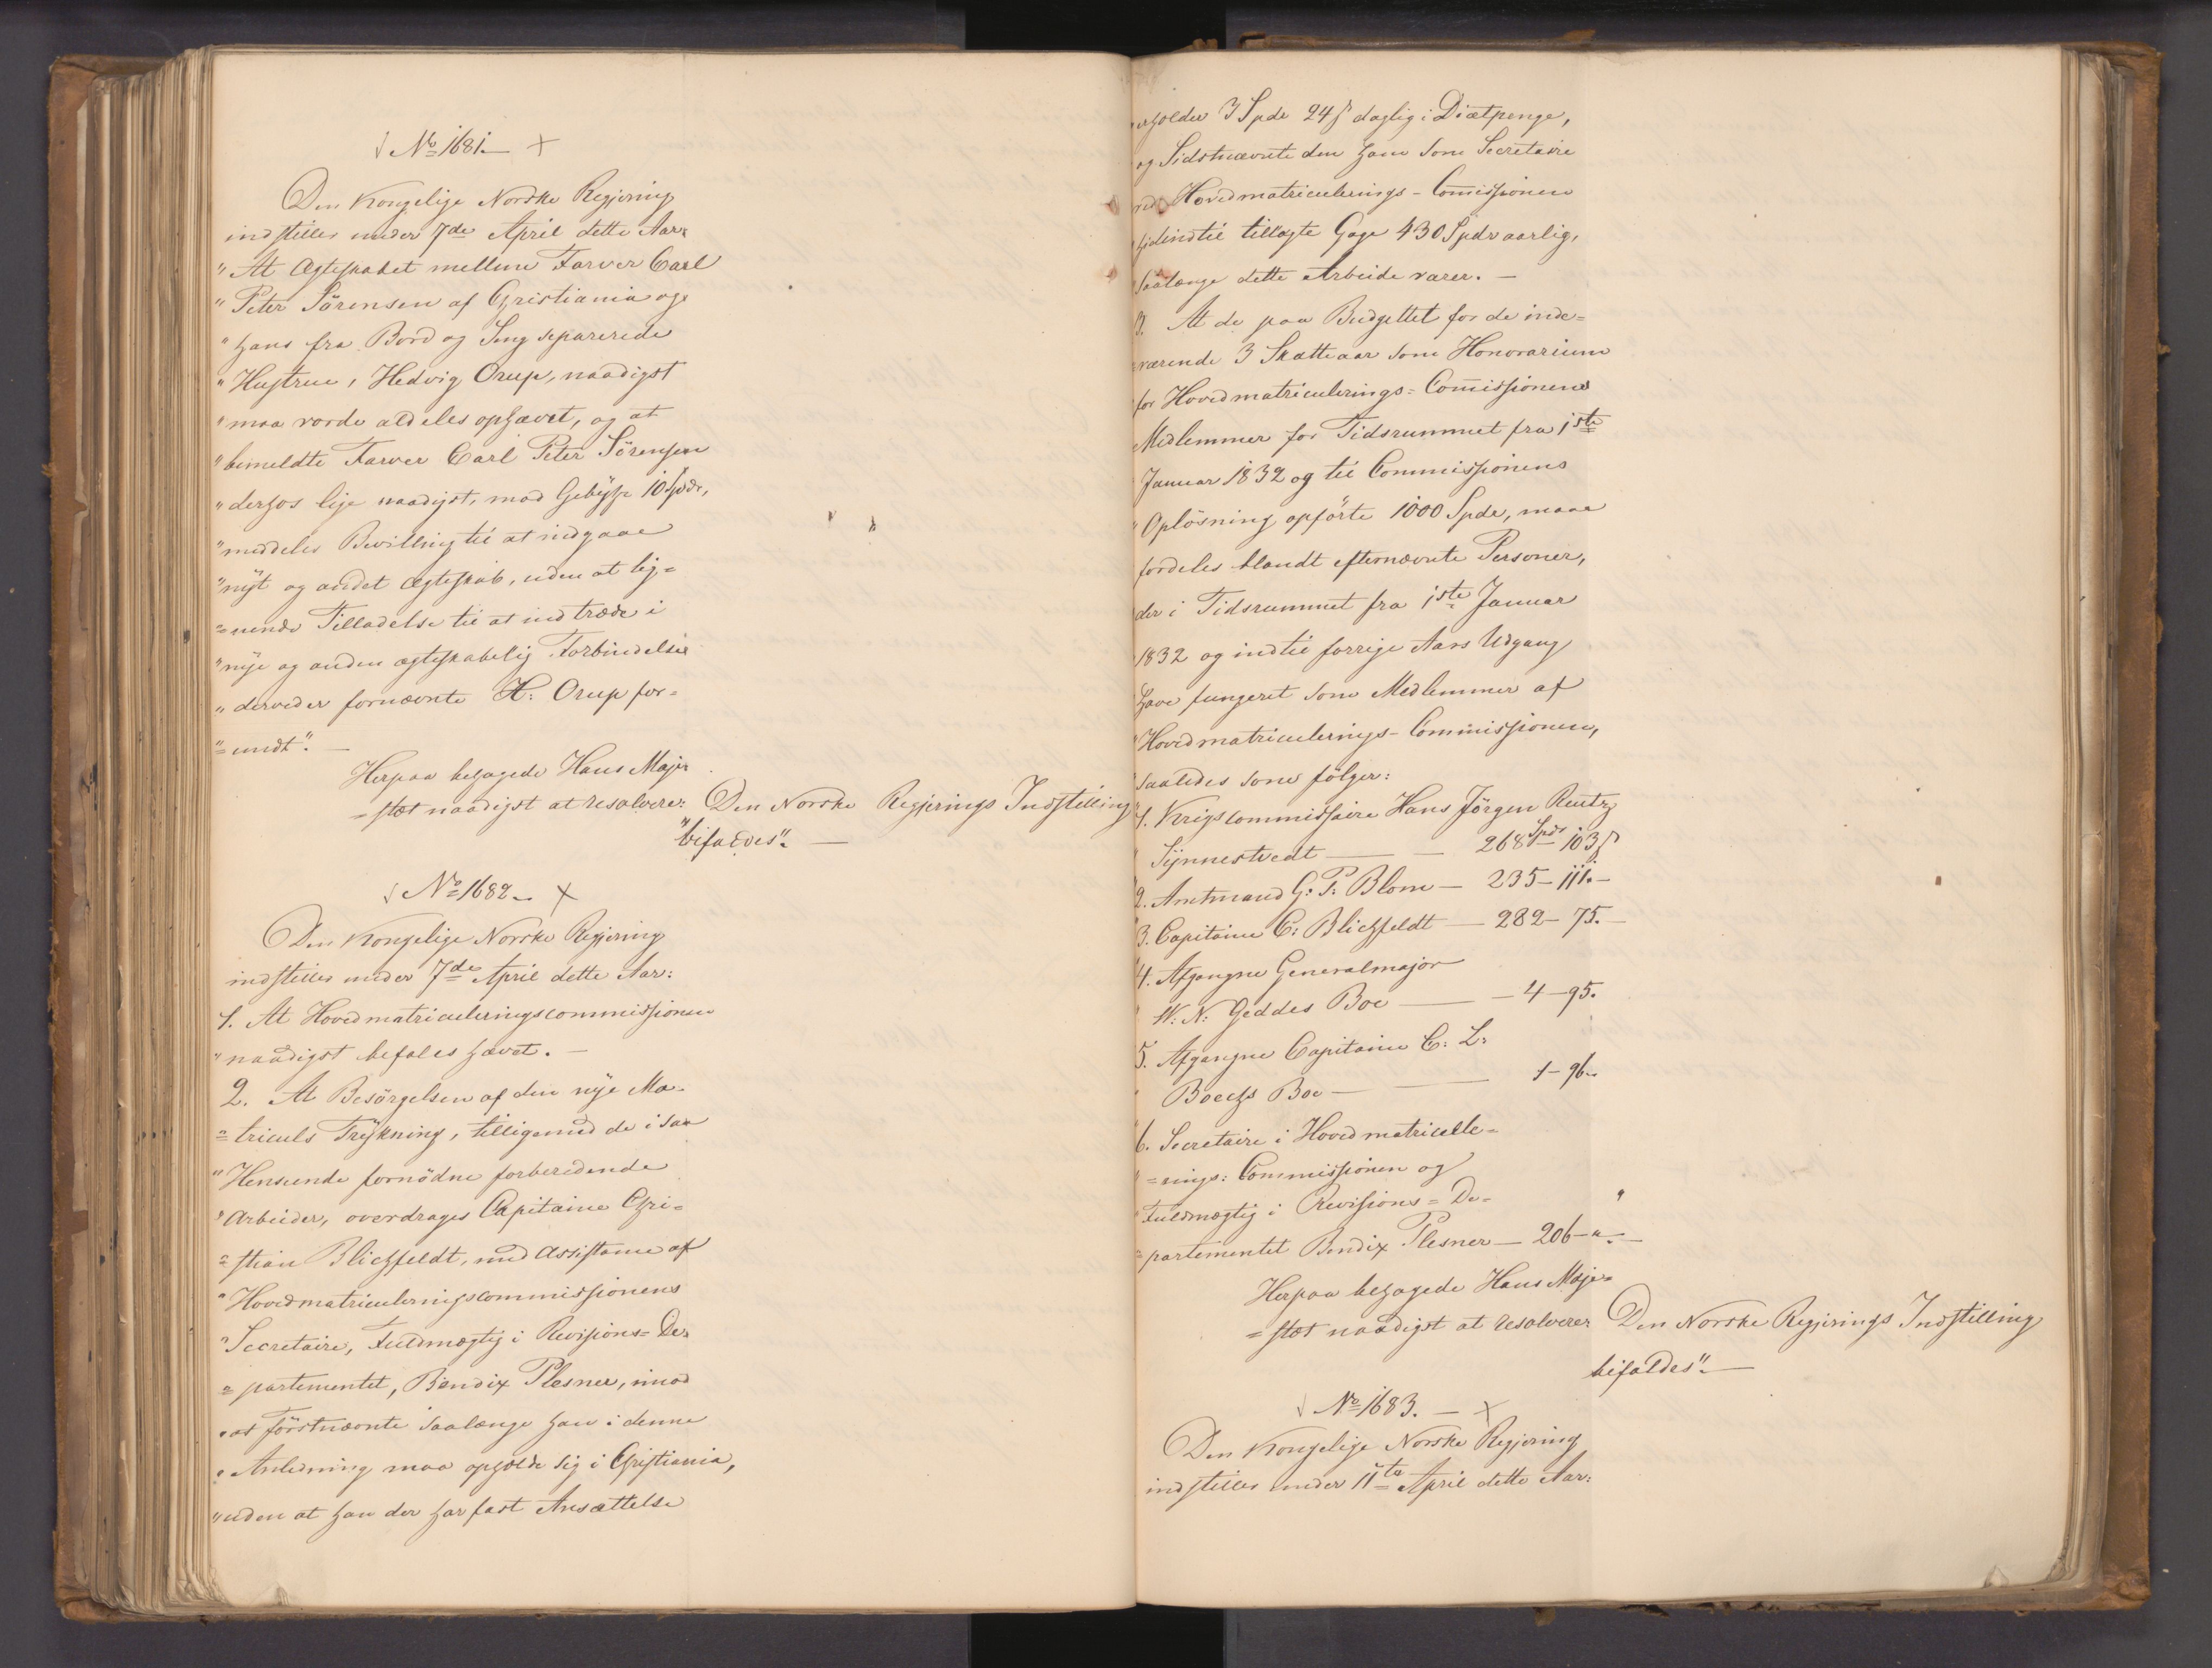 No 1681.
Den Kongelige Norske Regjering
indstiller under 7de April dette Aar:
"At Ægteskabet mellem Farver Carl
"Peter Sörensen af Christiania og
"hans fra Bord og Seng separerede
"Hustrue, Hedvig Orup, naadigst
"maa vorde aldeles ophævet, og at
"bemeldte Farver Carl Peter Sörensen
"derhos lige naadigst, mod Gebyhr 10 Spdr,
"meddeles Bevilling til at indgaae
"nyt og andet Ægteskab, uden at lig=
"=nende Tilladelse til at indtræde i
"nye og anden ægteskabelig Forbindelse
"derved er fornævnte H: Orup for=
"=undt". —
Herpaa behagede Hans Maje=
=stæt naadigst at resolvere: Den Norske Regjerings Indstilling
"bifaldes". —
No 1682.
Den Kongelige Norske Regjering
indstiller under 7de April dette Aar:
1. At Hovedmatriculeringscommissionen
"naadigst befales hævet. —
2. At Besörgelsen af den nye Ma=
=triculs Trykning, tilligemed de i saa
"Henseende fornödne forberedende
"Arbeider, overdrages Capitaine Chri=
=stian Blichfeldt, med Assistance af
"Hovedmatriculeringscommissionens
"Secretaire, Fuldmægtig i Revisions=De=
=partementet, Bendix Plesner, imod
"at förstnævnte saalænge han i denne
"Anledning maa opholde sig i Christiania,
"uden at han der har fast Ansættelse
"erholder 3 Spdr 24 ß daglig i Diætpenge,
"og Sidstnævnte den ham som Secretaire
"ved Hovedmatriculerings-Comissionen
"hidindtil tillagte Gage 430 Spdr aarlig,
"saalænge dette Arbeide varer. —
3. At de paa Budgettet for de inde=
=værende 3 Skatteaar som Honorarium
"for Hovedmatriculerings=Comissionens
Medlemmer for Tidsrummet fra 1ste
Januar 1832 og til Commissionens
"Oplösning opförte 1000 Spdr, maae
fordeles blandt efternævnte Personer,
der i Tidsrummet fra 1ste Januar
1832 og indtil forrige Aars Udgang
have fungeret som Medlemmer af
"Hovedmatriculerings-Commissionen,
"saaledes som fölger:
1. Krigscommissaire Hans Jörgen Reutz
Synnestvedt — — 268 Spdr 103 ß
2. Amtmand G: P: Blom — 235 — 111. —
3. Capitaine C: Blichfeldt — 282 — 75. —
4. Afgangne Generalmajor
W: N: Geddes Boe — — 4 — 95.
5. Afgangne Capitaine C: L:
Boecks Boe — — 1 — 96.
6. Secretaire i Hovedmatricule=
"=rings: Commissionen og
"Fuldmægtig i Revisions=De=
"partementet Bendix Plesner — 206 — " —
Herpaa behagede Hans Maje=
=stæt naadigst at resolvere: Den Norske Regjerings Indstilling
bifaldes". —
No 1683. —
Den Kongelige Norske Regjering
indstiller under 11te April dette Aar: